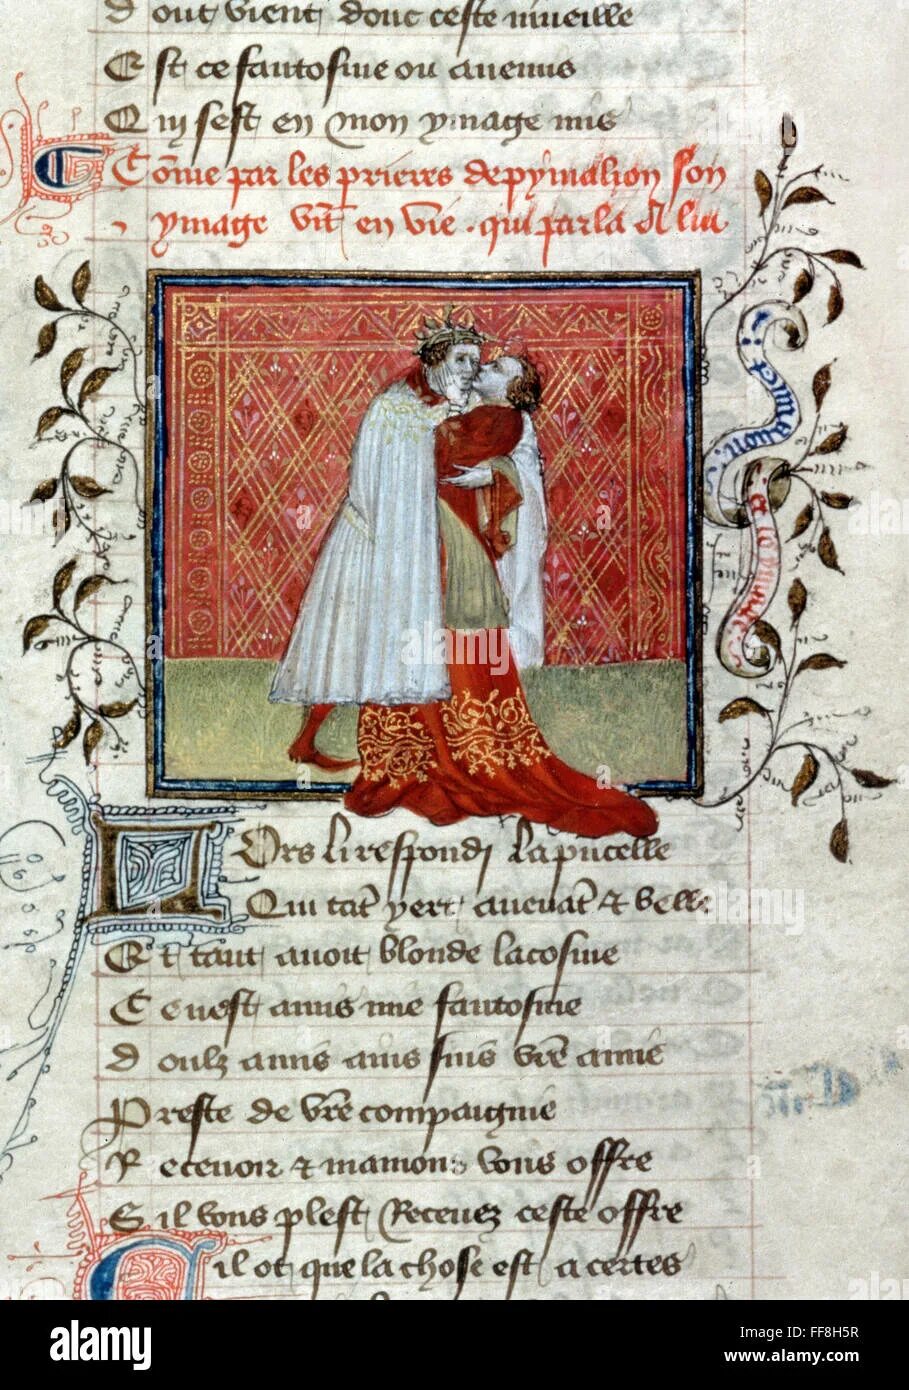 dout vient donc ceste mueille
Est ce fantosme ou avenus
Qui sest en mon ymage mis
Cõme par les prieres de pymalion son
ymage vit en vie . qui parla a lui
Lors li respondi la pucelle
Qui tãt yert avenãt & belle
Et tant avoit blonde la cosme
Ce nest amis mie fantosme
doulz amis ains suis vr̃e amie
Preste de vr̃e compaignie
Recevoir & mamour vous offre
Sil vous plest Recevez ceste offre
Cil ot que la chose est a certes
alamy
Image ID: FF8H5R
www.alamy.com